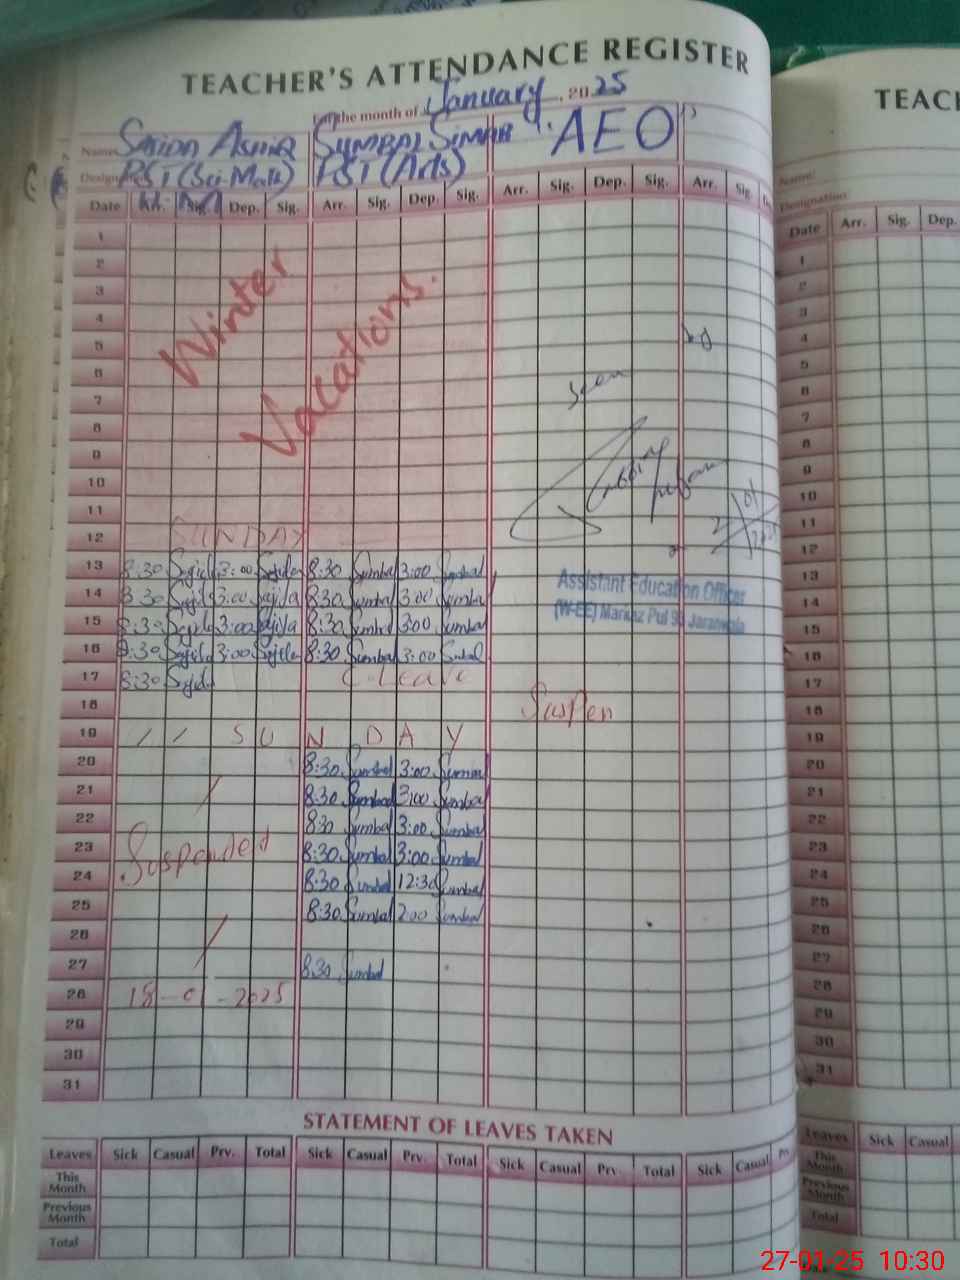 TEACHER'S ATTENDANCE REGISTER
the month of January, 2025
Name Asma Sumbal AEO
Designa PST (Sci-Math) PST (Arts)
Date Arr. Sig. Dep. Sig. Arr. Sig. Dep. Sig. Arr. Sig. Dep. Sig. Arr. Sig.
1
2
3
4
5
6
7
8
9
10
11
12 SUNDAY
Winter
Vacations.
seen
13 8:30 3:00 8:30 Sumbal 3:00 Sumbal
14 8:30 3:00 Sajila 8:30 Sumbal 3:00 Sumbal
15 8:30 3:00 8:30 Sumbal 3:00 Sumbal
16 8:30 3:00 8:30 Sumbal 3:00 Sumbal
Assistant Education Officer
(W-EE) Markaz Pul 93 Jaranwala
17 8:30 C-Leave
18 Suspen
19 SUNDAY
20 8:30 Sumbal 3:00 Sumbal
21 8:30 Sumbal 3:00 Sumbal
22 8:30 Sumbal 3:00 Sumbal
23 Suspended 8:30 Sumbal 3:00 Sumbal
24 8:30 Sumbal 12:30 Sumbal
25 8:30 Sumbal 2:00 Sumbal
26
27 8:30 Sumbal
28 18-01-2025
29
30
31
STATEMENT OF LEAVES TAKEN
Leaves Sick Casual Prv. Total Sick Casual Prv. Total Sick Casual Prv. Total Sick Casual
This Month
Previous Month
Total
TEACH
Name:
Designation
Date Arr. Sig. Dep.
1
2
3
4
5
6
7
8
9
10
11
12
13
14
15
16
17
18
19
20
21
22
23
24
25
26
27
28
29
30
31
Leaves Sick Casual
This Month
Previous Month
Total
27-01-25 10:30